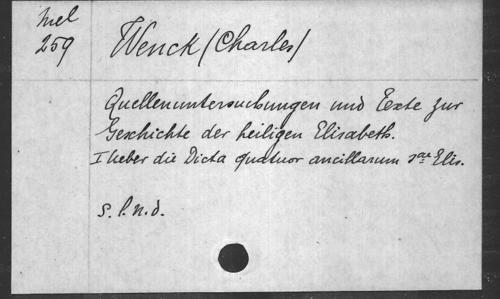 Mel
259
Wenck (Charles)
Quellenuntersuchungen und Texte zur
Geschichte der heiligen Elisabeth.
I Ueber die Dicta quatuor ancillarum sae Elis.
s. l. n. d.